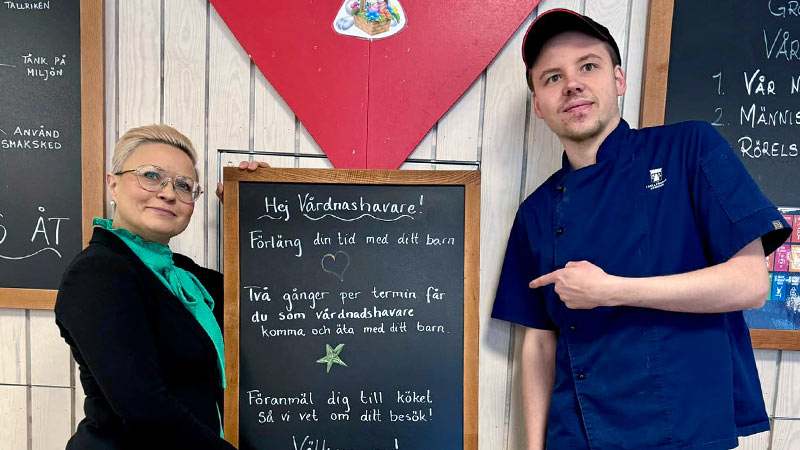 TALLRIKEN
TÄNK PÅ
MILJÖN
ANVÄND
SMAKSKED
ÅT
Hej Vårdnashavare!
Förläng din tid med ditt barn
Två gånger per termin får
du som vårdnadshavare
komma och äta med ditt barn.
Föranmäl dig till köket
Så vi vet om ditt besök!
VÅR
1. VÅR
2. MÄNNIS
RÖRELS